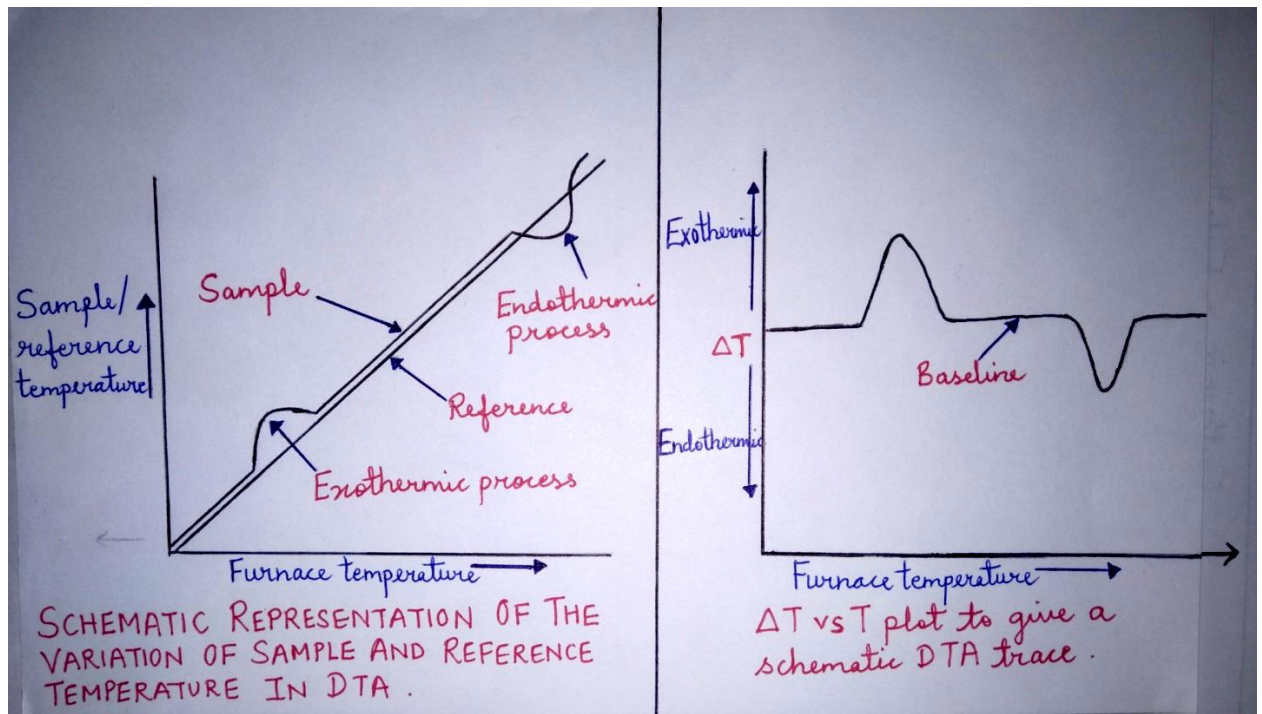 Sample/
reference
temperature
Sample
Endothermic
process
Reference
Exothermic process
Furnace temperature
SCHEMATIC REPRESENTATION OF THE
VARIATION OF SAMPLE AND REFERENCE
TEMPERATURE IN DTA.
Exothermic
ΔT
Endothermic
Baseline
Furnace temperature
ΔT vs T plot to give a
schematic DTA trace.